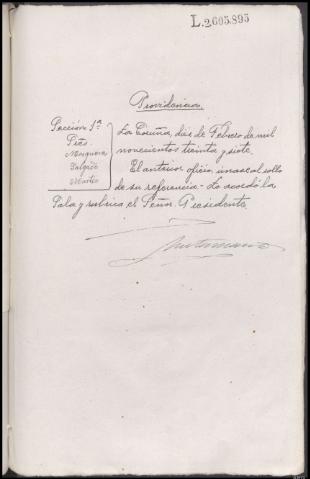 L.2605.895
Providencia.
Sección 1ª
Sres.
Mosquera
Salgado
La Coruña, diez de Febrero de mil
novecientos treinta y siete.
El anterior oficio, únase al rollo
de su referencia.- Lo acordó la
Sala y rubrica el Señor Presidente.